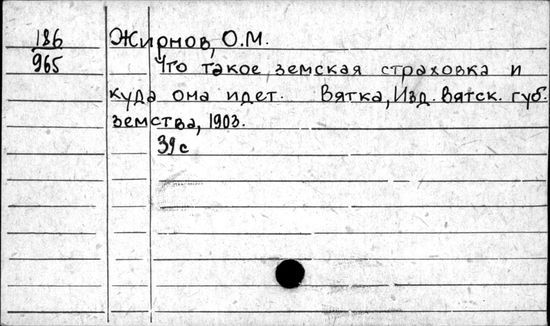 186
965
Жирнов, О.М.
Что такое земская страховка и
куда она идет. Вятка, Изд. Вятск. губ.
земства, 1903.
39 с